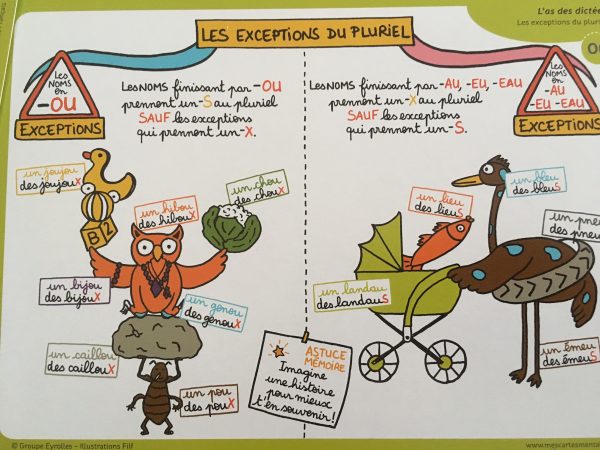 L'as des dictée
Les exceptions du pluri
LES EXCEPTIONS DU PLURIEL
Les
NOMS
en
-OU
EXCEPTIONS
Les NOMS finissant par -OU
prennent un -S au pluriel
SAUF les exceptions
qui prennent un -X.
un joujou
des joujouX
un hibou
des hibouX
un chou
des chouX
B 2
un bijou
des bijouX
un genou
des genouX
un caillou
des caillouX
un pou
des pouX
Les NOMS finissant par -AU, -EU, -EAU
prennent un -X au pluriel
SAUF les exceptions
qui prennent un -S.
Les
NOMS
en
-AU
-EU -EAU
EXCEPTIONS
un lieu
des lieuS
un bleu
des bleuS
un pneu
des pneu
un landau
des landauS
un émeu
des émeuS
ASTUCE
MÉMOIRE
Imagine
une histoire
pour mieux
t'en souvenir !
© Groupe Eyrolles – Illustrations Filf
www.mescartesmenta